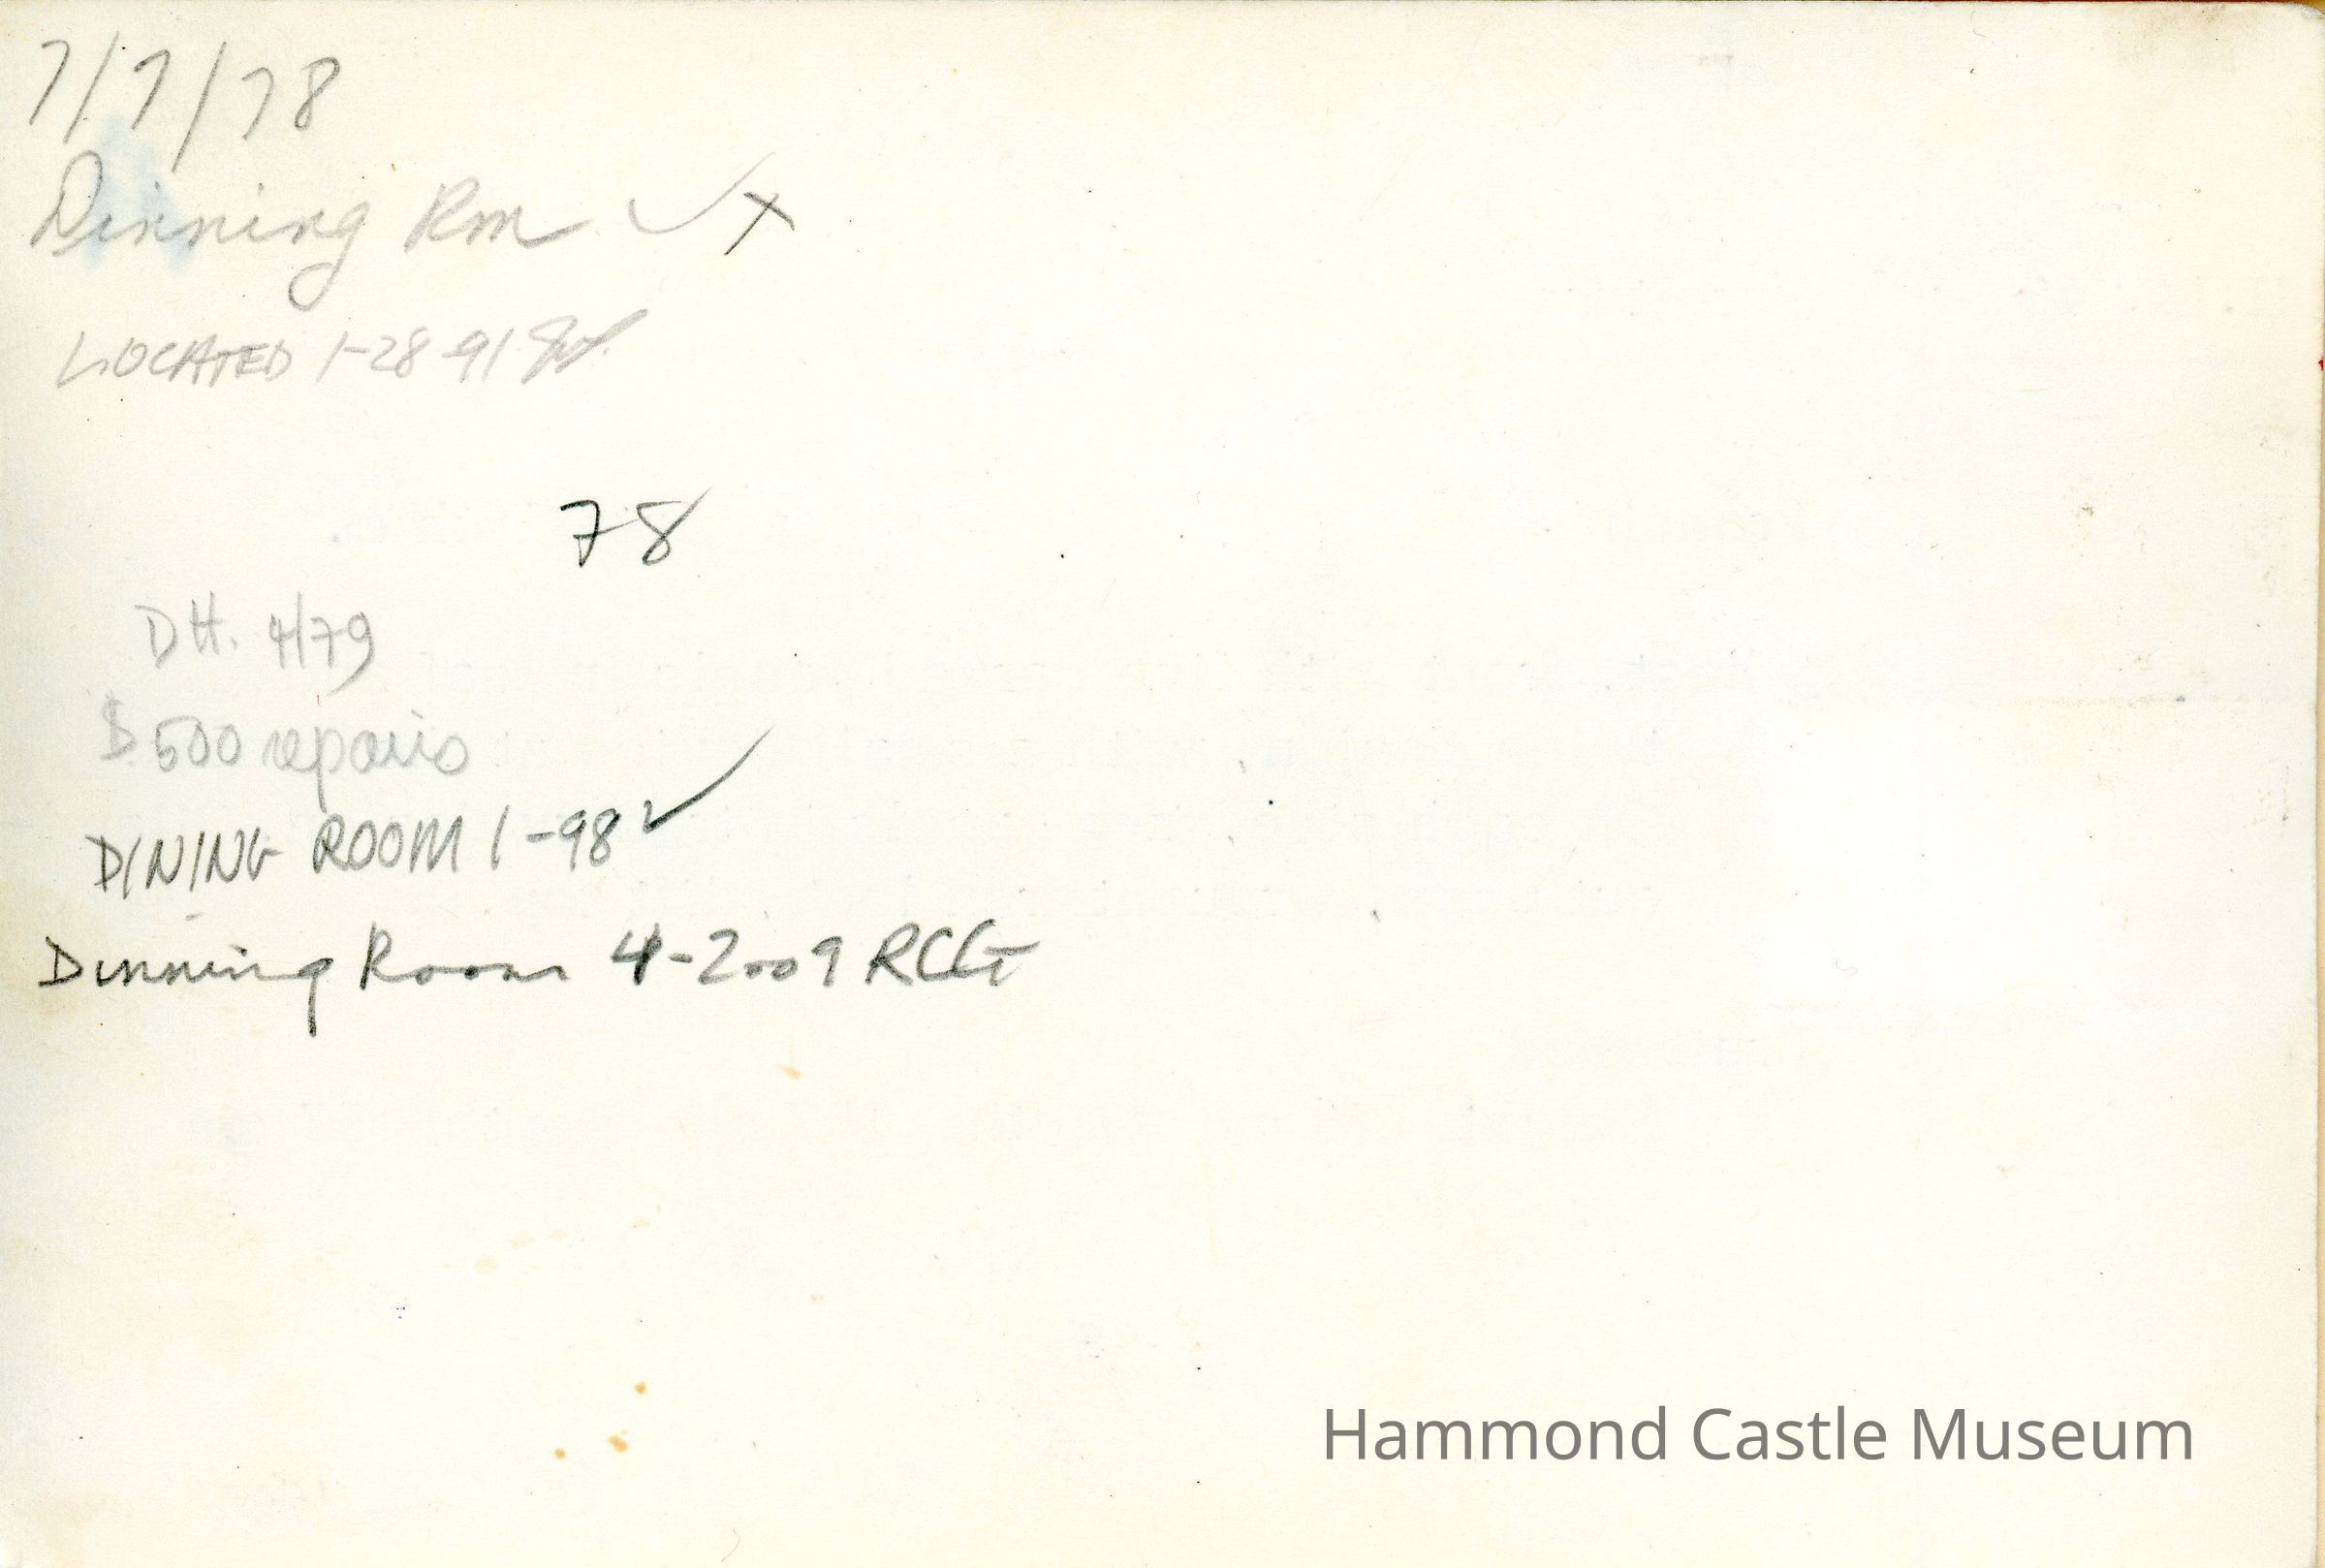 7/7/78
Dinning Rm ✓ X
LOCATED 1-28-91
78
DH. 4/79
$500 repairs
DINING ROOM 1-98 ✓
Dinning Room 4-2009 RCG
Hammond Castle Museum